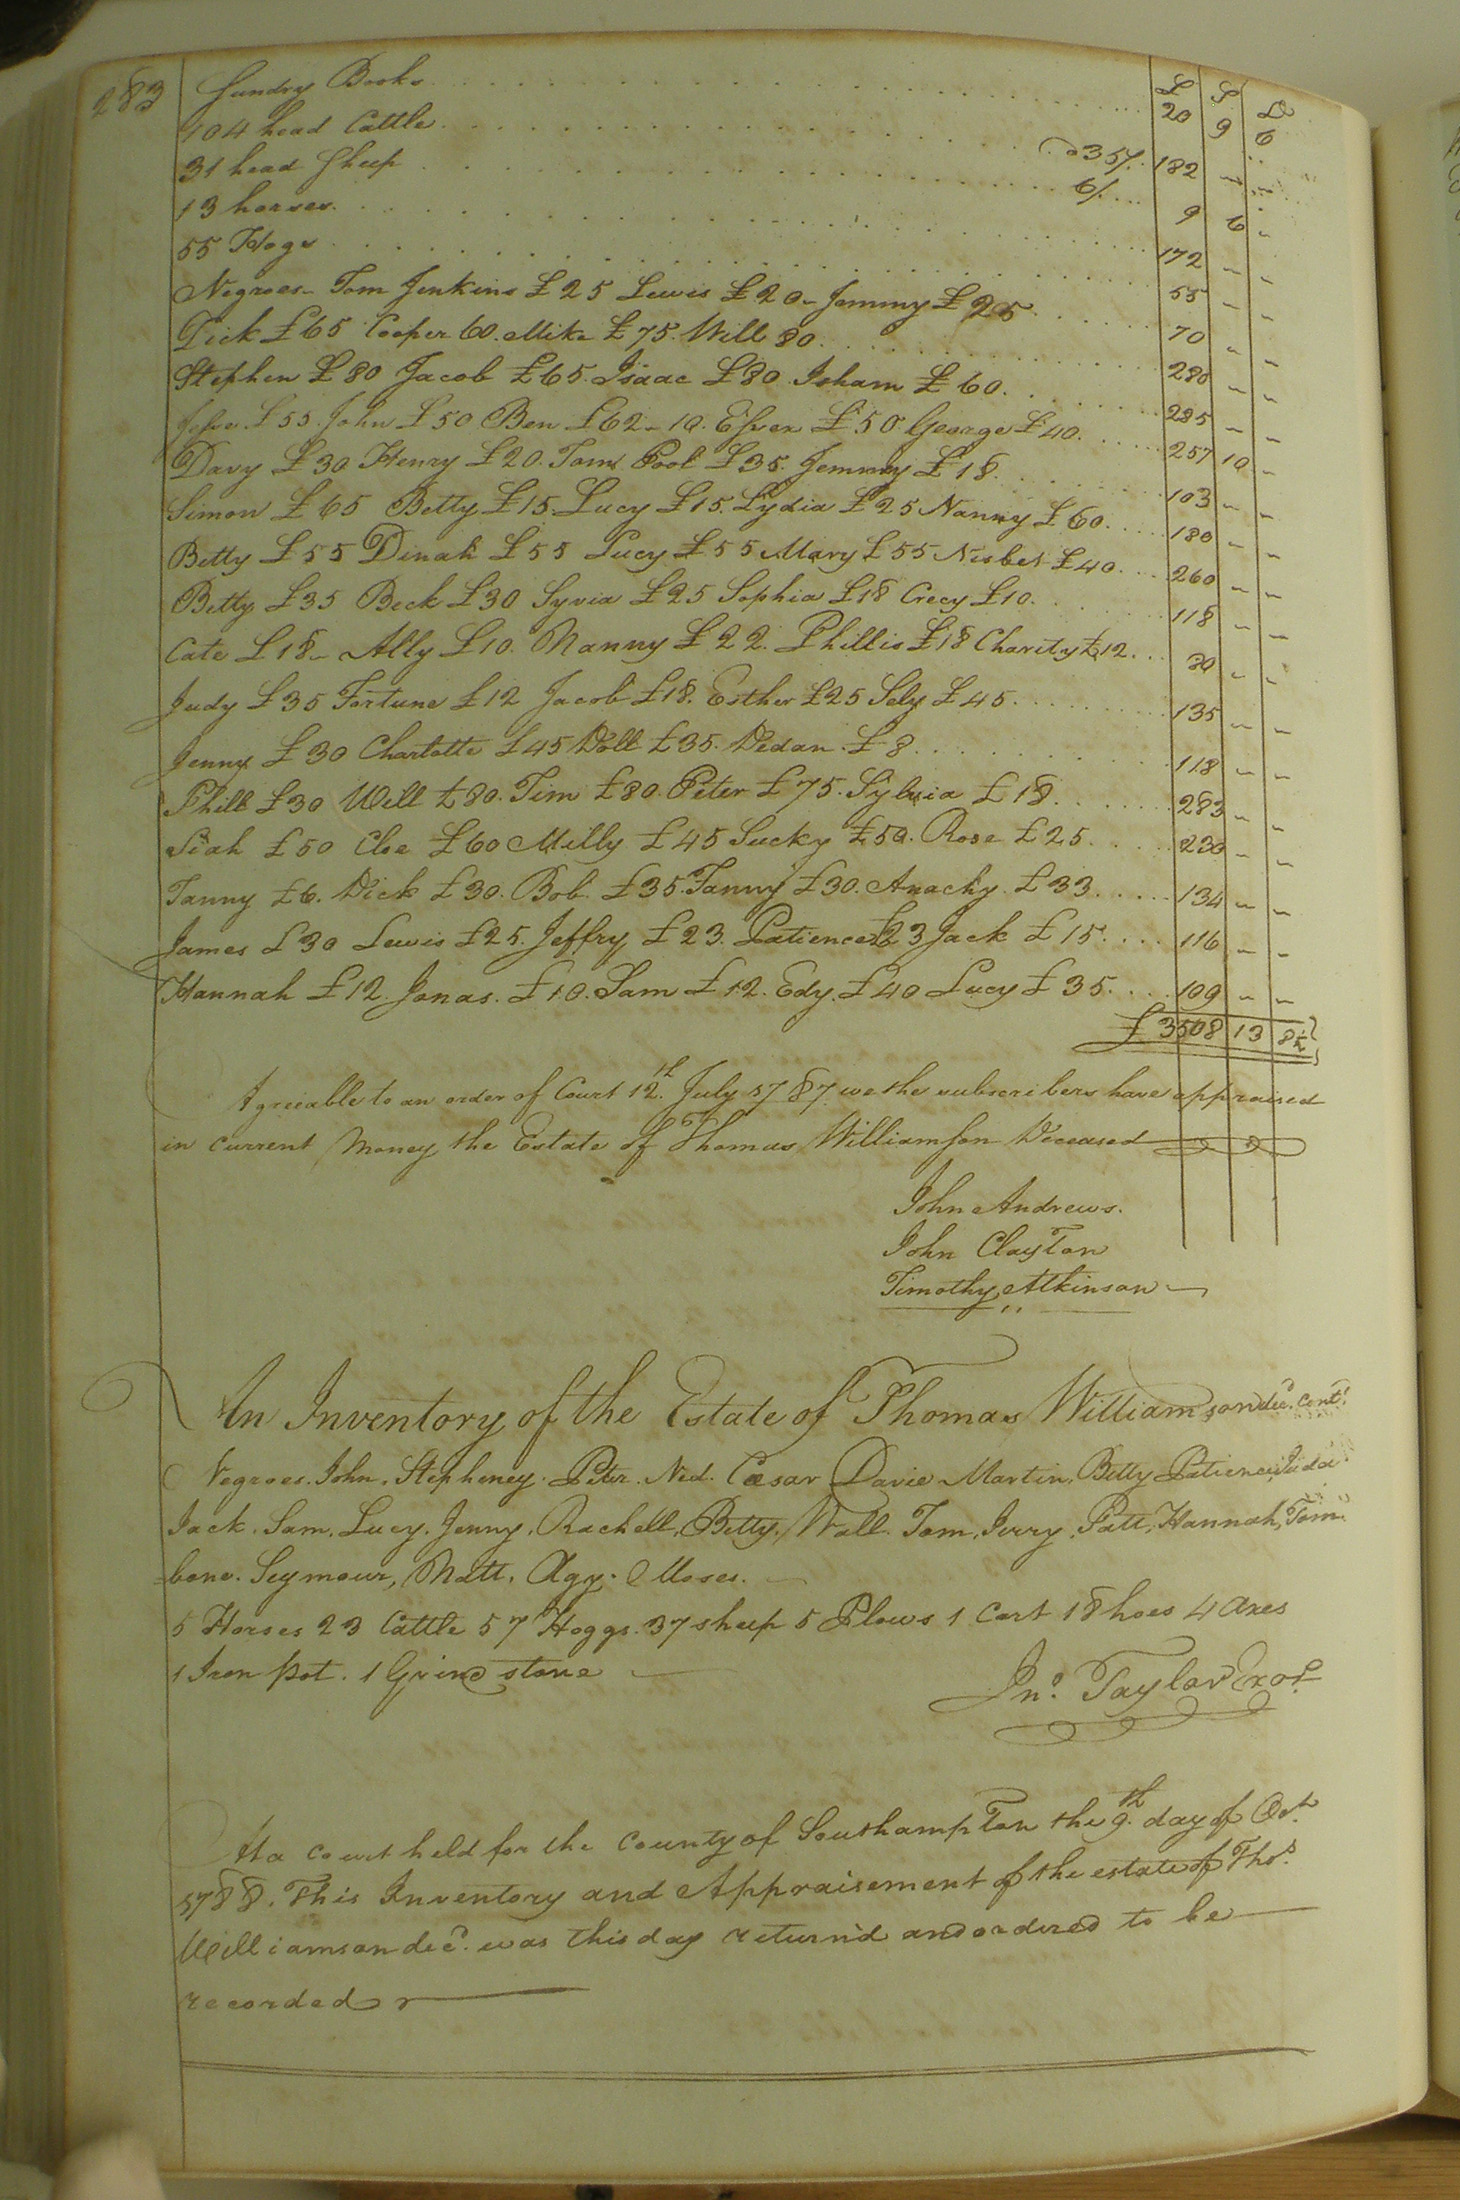 283
£ S D
Sundry Books 20 9 6
104 head Cattle @ 35/. 182 " "
31 head Sheep 6/. 9 6 "
13 horses. 172 " "
55 Hogs 55 " "
Negroes- Tom Jenkins £25 Lewis £20- Jemmy £25 70 " "
Dick £65 Cooper 60. Mike £75. Will 80. 280 " "
Stephen £80 Jacob £65. Isaac £80. Isham £60. 285 " "
Jesse £55. John £50 Ben £62-10. Essex £50 George £40. 257 10 "
Davy £30 Henry £20. Tom Pool £35. Jemmy £18. 103 " "
Simon £65 Betty £15. Lucy £15. Lydia £25 Nanny £60. 180 " "
Betty £55 Dinah £55 Lucy £55 Mary £55 Nisbet £40. 260 " "
Betty £35 Beck £30 Syvia £25 Sophia £18 Crecy £10. 118 " "
Cate £18- Ally £10. Nanny £22. Phillis £18 Charity £12. 80 " "
Judy £35 Fortune £12 Jacob £18. Esther £25 Sely £45. 135 " "
Jenny £30 Charlotte £45 Doll £35. Dedan. £8. 118 " "
Phill £30 Will £80. Tim £80. Peter £75. Sylvia £18. 283 " "
Siah £50 Cloe £60 Milly £45 Sucky £50. Rose £25 230 " "
Fanny £6. Dick £30. Bob. £35. Fanny £30. Anachy. £33. 134 " "
James £30 Lewis £25. Jeffry £23. Patience £23 Jack £15. 116 " "
Hannah £12. Jonas. £10. Sam £12. Edy. £40 Lucy £35. 109 " "
£ 3508 13 8½
Agreeable to an order of Court 12th. July 1787. we the subscribers have appraised
in current Money the Estate of Thomas Williamson Deceased
John Andrews.
John Clayton
Timothy Atkinson
An Inventory of the Estate of Thomas Williamson dec. cont.
Negroes. John. Stepheney. Peter. Ned. Cæsar Davie Martin. Betty Patience, Juda
Jack. Sam. Lucy. Jenny. Rachell. Betty. Wall. Tom, Jerry. Patt, Hannah, Tom
=bone. Seymour, Matt. Agy. Moses.
5 Horses 23 Cattle 57 Hoggs. 37 sheep 5 Plows 1 Cart 18 hoes 4 axes
1 Iron pot. 1 Grindstone
Jno. Taylor Exor.
At a court held for the County of Southampton the 9th. day of Oct.
1788. This Inventory and Appraisement of the estate of Thos.
Williamson decd. was this day return'd and ordered to be
recorded